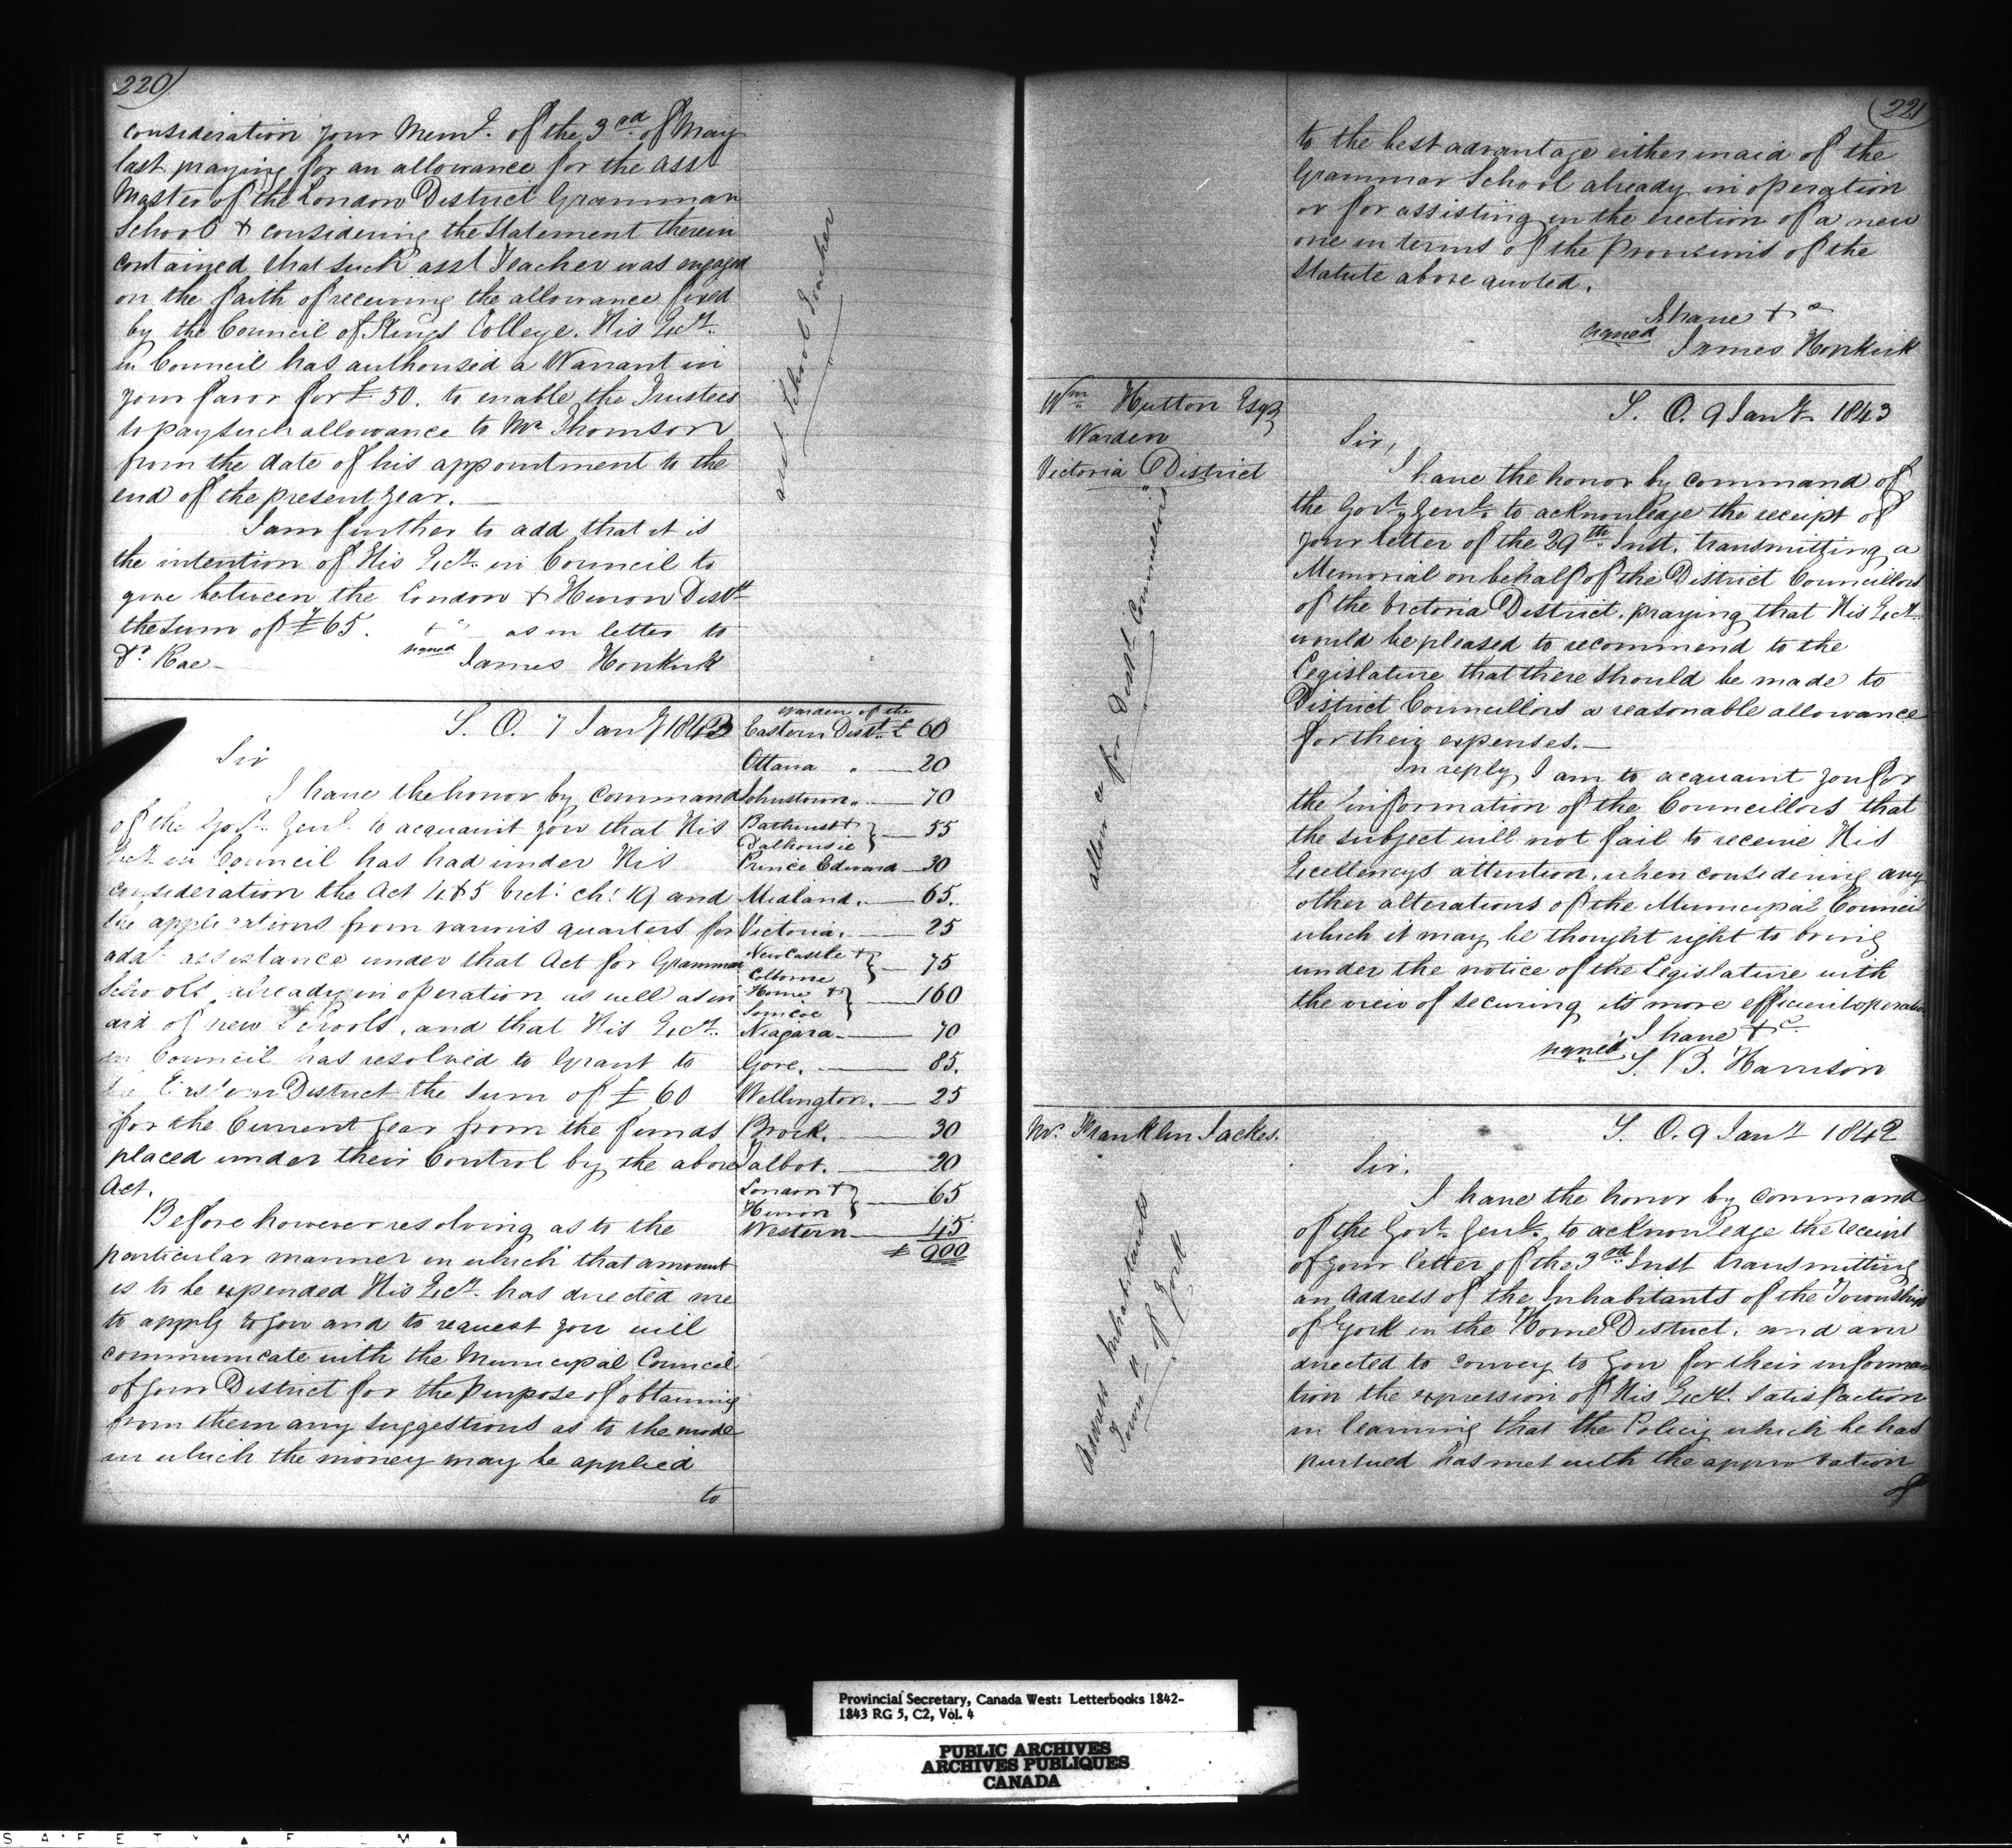 220
consideration your Meml. of the 3rd of May
last praying for an allowance for the asst
Master of the London District Grammar
School & considering the Statement therein
contained that such asst Teacher was engaged
on the faith of receiving the allowance fixed
by the Council of Kings College. His Excy.
in Council has authorised a Warrant in
your favor for £50. to enable the Trustees
to pay such allowance to Mr Thomson
from the date of his appointment to the
end of the present year.
I am further to add that it is
the intention of His Excy. in Council to
give between the London & Huron Distts
the sum of £65. &c as in letter to
Dr. Rae
signed James Hopkirk
asst School Teacher
S. O. 7 Jany 1843
Sir
I have the honor by command
of the Govr. Genl. to acquaint you that His
Excy. in Council has had under His
consideration the Act 4 & 5 Vict: ch: 19 and
the applications from various quarters for
addl. assistance under that Act for Grammar
Schools, already in operation as well as in
aid of new Schools, and that His Excy.
in Council has resolved to Grant to
the Eastern District the Sum of £60
for the Current Year from the funds
placed under their Control by the above
Act.
Before however resolving as to the
particular manner in which that amount
is to be expended His Excy. has directed me
to apply to you and to request you will
communicate with the Municipal Council
of your District for the Purpose of obtaining
from them any suggestions as to the mode
in which the money may be applied
to
Warden of the
Eastern Distt. £ 60
Ottawa " 20
Johnstown " 70
Bathurst &
Dalhousie } 55
Prince Edward 30
Midland. 65.
Victoria. 25
NewCastle &
Colborne } 75
Home &
Simcoe } 160
Niagara 70
Gore. 85.
Wellington. 25
Brock. 30
Talbot. 20
London &
Huron } 65
Western 45
£ 900
221
to the best advantage either in aid of the
Grammar School already in operation
or for assisting in the erection of a new
one in terms of the provisions of the
Statute above quoted.
I have &c
signed James Hopkirk
Wm Hutton Esqr
Warden
Victoria District
allowce for Distt Councillors
S. O. 9 Jany 1843
Sir,
I have the honor by command of
the Govr. Genl. to acknowledge the receipt of
your letter of the 29th Inst. transmitting a
Memorial on behalf of the District Councillors
of the Victoria District, praying that His Excy.
would be pleased to recommend to the
Legislature that there should be made to
District Councillors a reasonable allowance
for their expenses.
In reply, I am to acquaint you for
the information of the Councillors that
the subject will not fail to receive His
Excellencys attention, when considering any
other alterations of the Municipal Council
which it may be thought right to bring
under the notice of the Legislature with
the view of securing its more efficient operation
I have &c
signed S. B. Harrison
Mr. Franklin Jackes.
Address Inhabitants
Town p of York
S. O. 9 Jany 1842
Sir.
I have the honor by command
of the Govr. Genl. to acknowledge the receipt
of your letter of the 3rd Inst transmitting
an Address of the Inhabitants of the Township
of York in the Home District. and am
directed to convey to you for their informa
tion the expression of His Excys. satisfaction
in learning that the Policy which he has
pursued has met with the approbation
of
Provincial Secretary, Canada West: Letterbooks 1842-
1843 RG 5, C2, Vol. 4
PUBLIC ARCHIVES
ARCHIVES PUBLIQUES
CANADA
SAFETY FILM